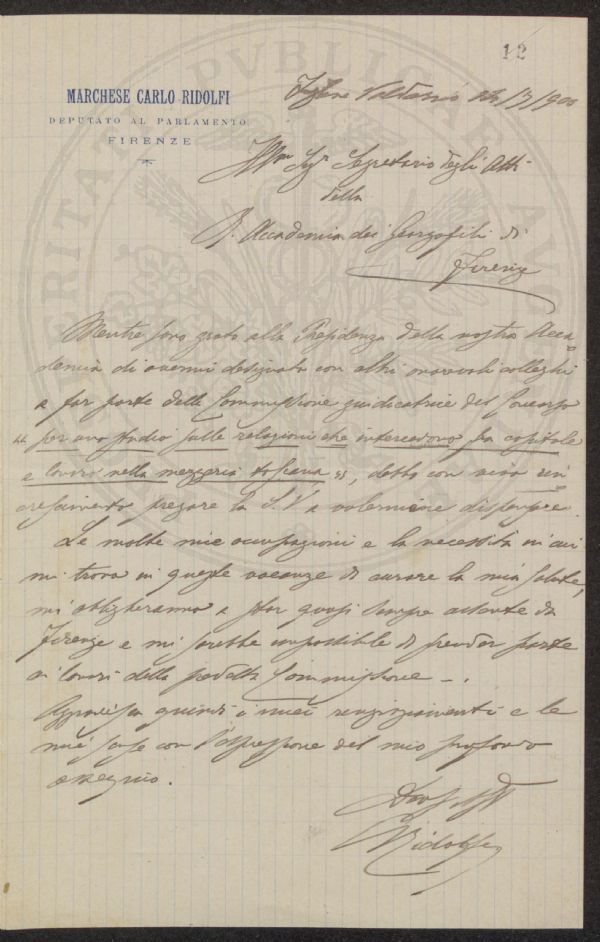 12
MARCHESE CARLO RIDOLFI
DEPUTATO AL PARLAMENTO
FIRENZE
Valdarno /7/900
Ill.mo Sig.r Segretario degli Atti
della
R. Accademia dei Georgofili di
Firenze
Mentre sono grato alla Presidenza della nostra Acca-
demia di avermi designato con altri onorevoli colleghi
a far parte della Commissione giudicatrice del Concorso
"per uno studio sulle relazioni che intercedono fra capitale
e lavoro nella mezzeria toscana", debbo con vivo rin
crescimento pregare la S.V. a volermene dispensare.
Le molte mie occupazioni e la necessità in cui
mi trovo in queste vacanze di curare la mia salute,
mi obbligheranno a star quasi sempre assente da
Firenze e mi sarebbe impossibile di prender parte
ai lavori della predetta Commissione -.
Aggradisca quindi i miei ringraziamenti e le
mie scuse con l'espressione del mio profondo
ossequio.
Dev
Ridolfi